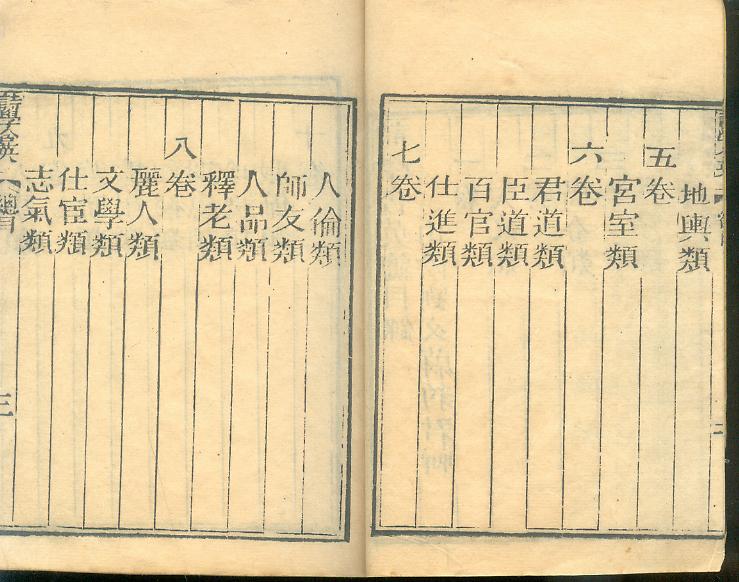 地輿類
五卷
宮室類
六卷
君道類
臣道類
百官類
仕進類
七卷
人倫類
師友類
人品類
釋老類
八卷
麗人類
文學類
仕宦類
志氣類
總目
三